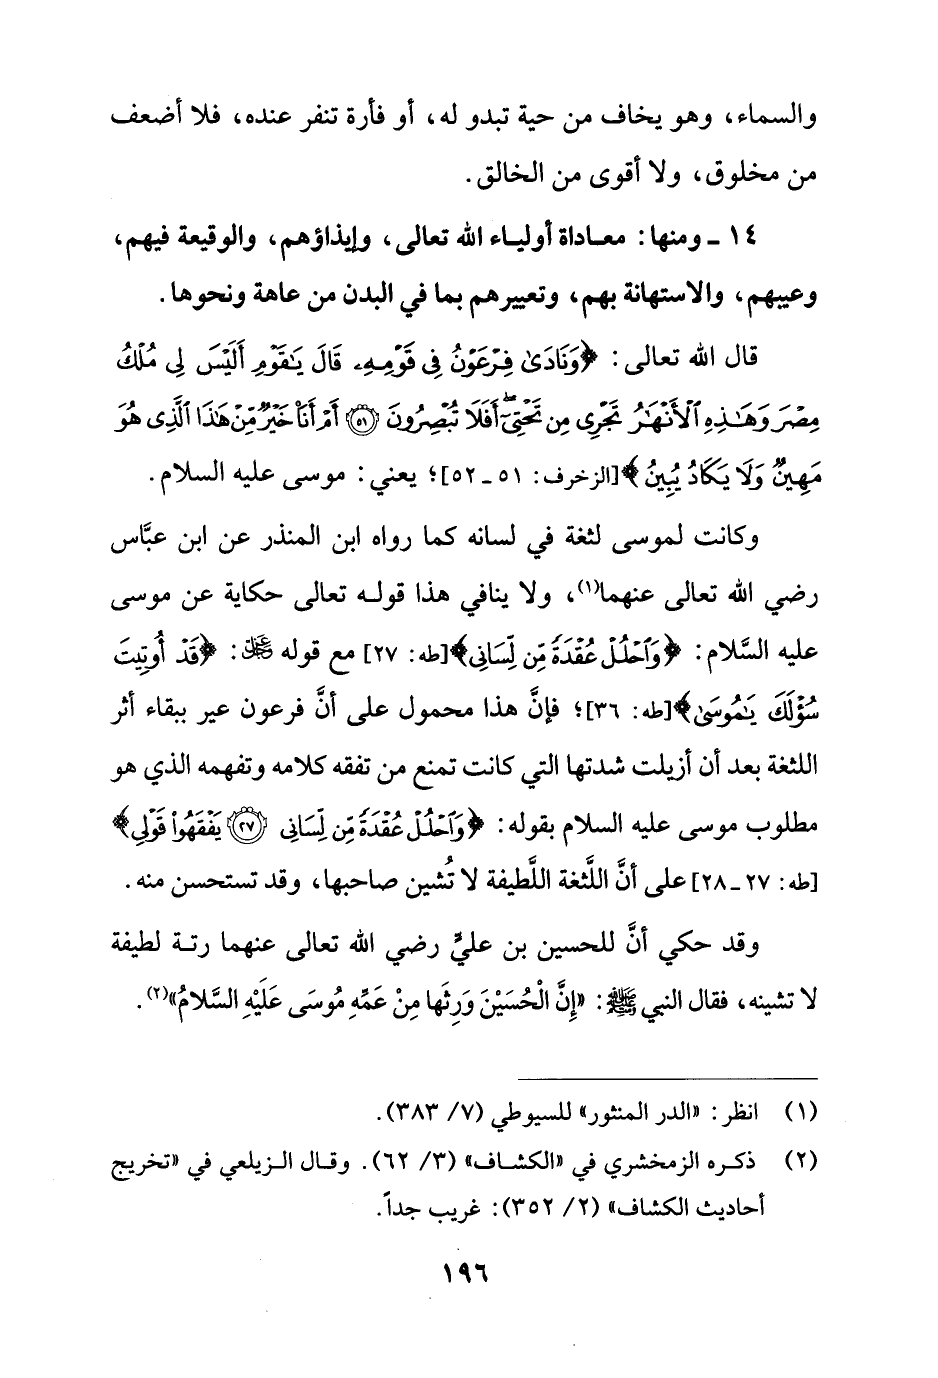 والسماء، وهو يخاف من حية تبدو له، أو فأرة تنفر عنده، فلا أضعف
من مخلوق، ولا أقوى من الخالق.
١٤ ـ ومنها: معـاداة أوليـاء الله تعالى، وإيذاؤهم، والوقيعة فيهم،
وعيبهم، والاستهانة بهم، وتعييرهم بما في البدن من عاهة ونحوها.
قال الله تعالى: ﴿وَنَادَىٰ فِرْعَوْنُ فِى قَوْمِهِۦ قَالَ يَٰقَوْمِ أَلَيْسَ لِى مُلْكُ
مِصْرَ وَهَٰذِهِ ٱلْأَنْهَٰرُ تَجْرِى مِن تَحْتِىٓۖ أَفَلَا تُبْصِرُونَ ۝٥١ أَمْ أَنَا۠ خَيْرٌ مِّنْ هَٰذَا ٱلَّذِى هُوَ
مَهِينٌ وَلَا يَكَادُ يُبِينُ﴾[الزخرف: ٥١ ـ ٥٢]؛ يعني: موسى عليه السلام.
وكانت لموسى لثغة في لسانه كما رواه ابن المنذر عن ابن عبَّاس
رضي الله تعالى عنهما(١)، ولا ينافي هذا قولـه تعالى حكاية عن موسى
عليه السَّلام: ﴿وَٱحْلُلْ عُقْدَةً مِّن لِّسَانِى﴾[طه: ٢٧] مع قوله ﷻ: ﴿قَدْ أُوتِيتَ
سُؤْلَكَ يَٰمُوسَىٰ﴾[طه: ٣٦]؛ فإنَّ هذا محمول على أنَّ فرعون عير ببقاء أثر
اللثغة بعد أن أزيلت شدتها التي كانت تمنع من تفقه كلامه وتفهمه الذي هو
مطلوب موسى عليه السلام بقوله: ﴿وَٱحْلُلْ عُقْدَةً مِّن لِّسَانِى ۝٢٧ يَفْقَهُوا۟ قَوْلِى﴾
[طه: ٢٧ ـ ٢٨] على أنَّ اللَّثغة اللَّطيفة لا تُشين صاحبها، وقد تستحسن منه.
وقد حكي أنَّ للحسين بن عليٍّ رضي الله تعالى عنهما رتـة لطيفة
لا تشينه، فقال النبي ﷺ: «إِنَّ الْحُسَيْنَ وَرِثَها مِنْ عَمِّهِ مُوسَى عَلَيْهِ السَّلامُ»(٢).
(١) انظر: «الدر المنثور» للسيوطي (٧/ ٣٨٣).
(٢) ذكـره الزمخشري في «الكشاف» (٣/ ٦٢). وقـال الـزيلعي في «تخريج
أحاديث الكشاف» (٢/ ٣٥٢): غريب جداً.
١٩٦